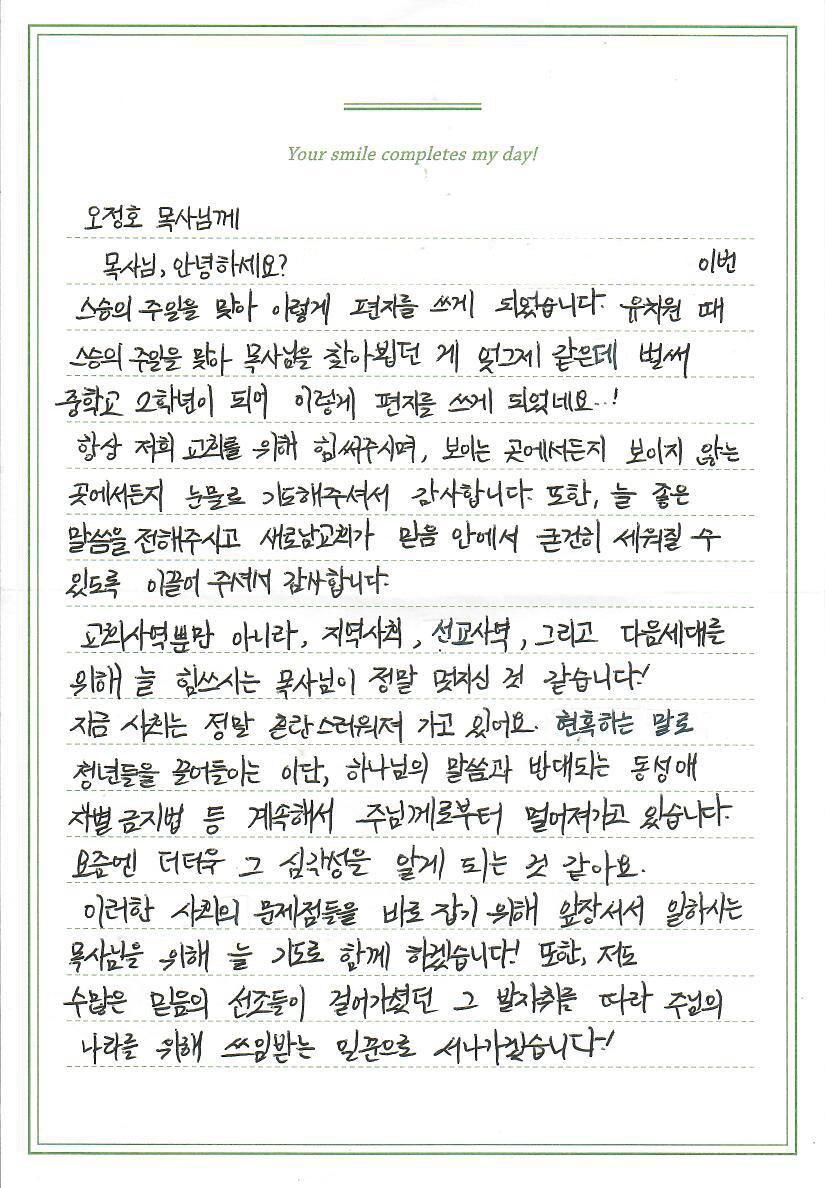 Your smile completes my day!
오정호 목사님께
목사님, 안녕하세요? 이번
스승의 주일을 맞아 이렇게 편지를 쓰게 되었습니다. 유치원 때
스승의 주일을 맞아 목사님을 찾아뵙던 게 엊그제 같은데 벌써
중학교 2학년이 되어 이렇게 편지를 쓰게 되었네요...!
항상 저희 교회를 위해 힘써주시며, 보이는 곳에서든지 보이지 않는
곳에서든지 눈물로 기도해주셔서 감사합니다. 또한, 늘 좋은
말씀을 전해주시고 새로남교회가 믿음 안에서 굳건히 세워질 수
있도록 이끌어 주셔서 감사합니다.
교회사역뿐만 아니라, 지역사회, 선교사역, 그리고 다음세대를
위해 늘 힘쓰시는 목사님이 정말 멋지신 것 같습니다!
지금 사회는 정말 혼란스러워져 가고 있어요. 현혹하는 말로
청년들을 끌어들이는 이단, 하나님의 말씀과 반대되는 동성애
차별금지법 등 계속해서 주님께로부터 멀어져가고 있습니다.
요즘엔 더더욱 그 심각성을 알게 되는 것 같아요.
이러한 사회의 문제점들을 바로 잡기 위해 앞장서서 일하시는
목사님을 위해 늘 기도로 함께 하겠습니다! 또한, 저도
수많은 믿음의 선조들이 걸어가셨던 그 발자취를 따라 주님의
나라를 위해 쓰임받는 일꾼으로 서나가겠습니다!